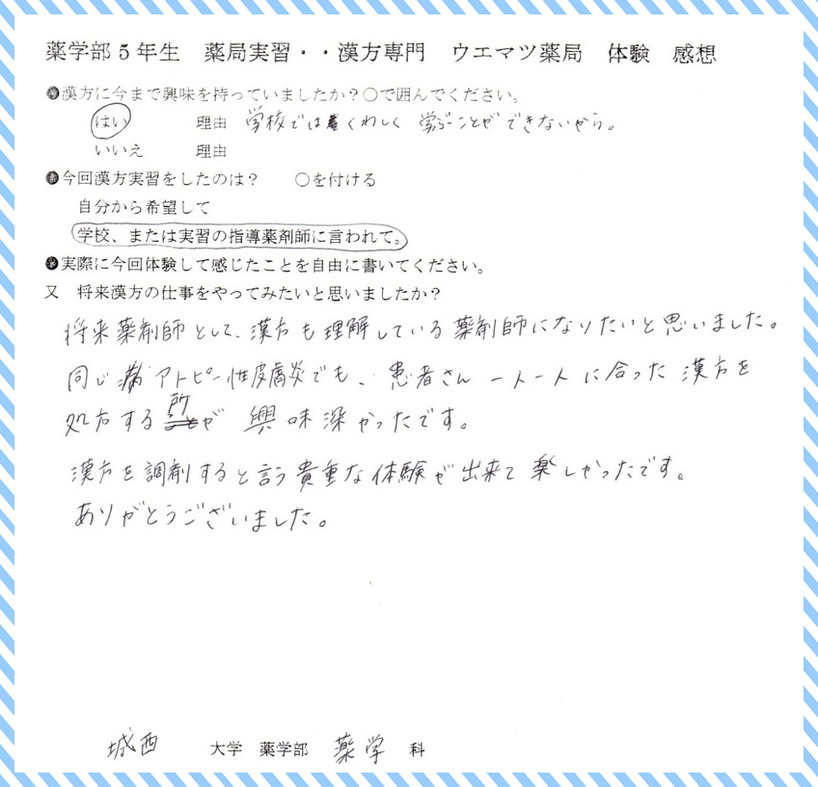 薬学部5年生　薬局実習・・漢方専門　ウエマツ薬局　体験　感想
●漢方に今まで興味を持っていましたか？○で囲んでください。
はい　理由　学校ではくわしく学ぶことができないから。
いいえ　理由
●今回漢方実習をしたのは？　○を付ける
自分から希望して
学校、または実習の指導薬剤師に言われて。
●実際に今回体験して感じたことを自由に書いてください。
又　将来漢方の仕事をやってみたいと思いましたか？
将来薬剤師として、漢方も理解している薬剤師になりたいと思いました。
同じアトピー性皮膚炎でも、患者さん一人一人に合った漢方を
処方する所が興味深かったです。
漢方を調剤すると言う貴重な体験が出来て楽しかったです。
ありがとうございました。
城西　大学　薬学部　薬学　科